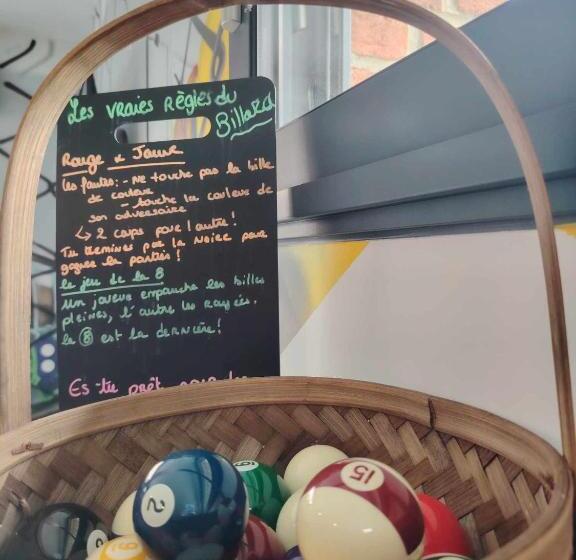 Les vraies règles du
Billard
Rouge & Jaune
les fautes: - Ne touche pas la bille
de couleur
- touche la couleur de
son adversaire
↳ 2 coups pour l'autre!
Tu termines par la Noire pour
gagner la partie!
le jeu de la 8
Un joueur empauche les billes
pleines, l'autre les rayées.
la 8 est la dernière!
Es-tu prêt
2
6
15